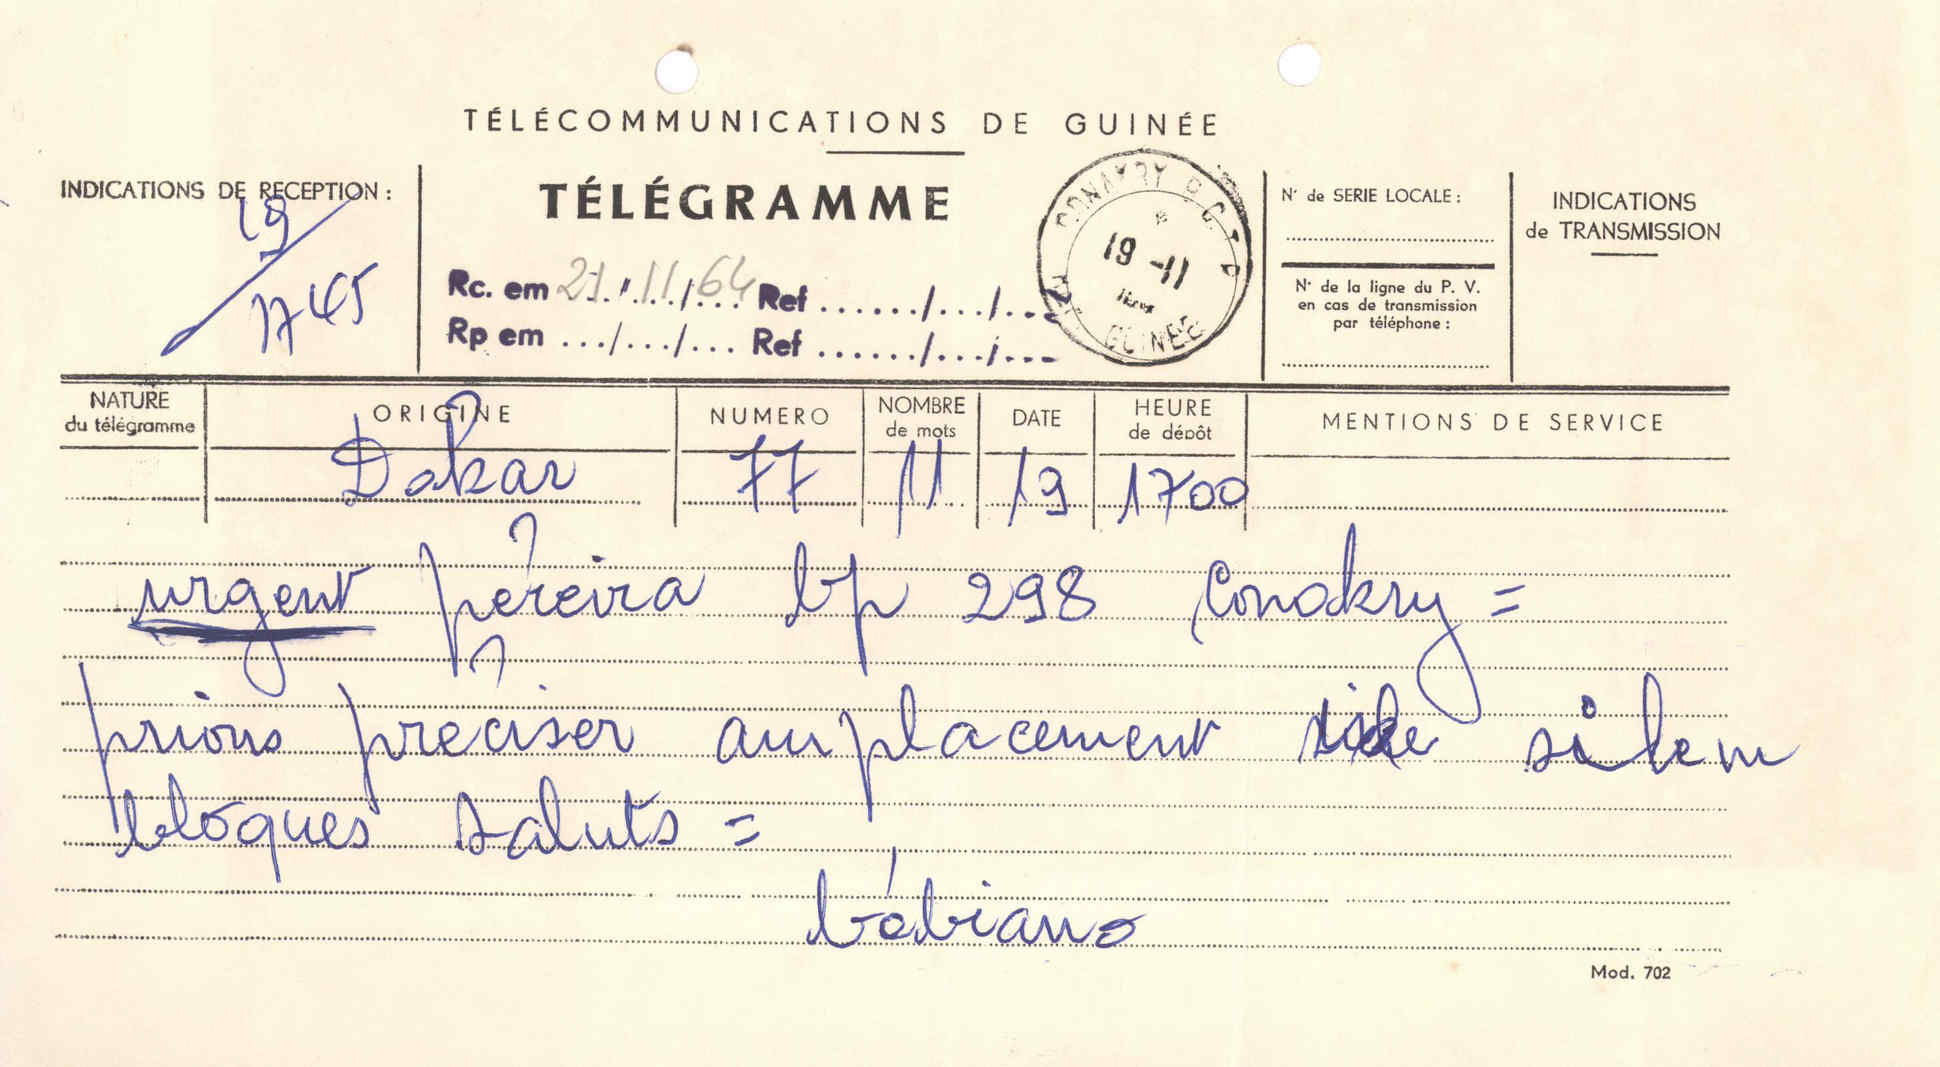 TÉLÉCOMMUNICATIONS DE GUINÉE
INDICATIONS DE RECEPTION :
19
1745
TÉLÉGRAMME
Rc. em 21/11/64 Ref ....../.../...
Rp em .../.../... Ref ....../.../...
CONAKRY P.C.T.P
19 - 11
GUINEE
N° de SERIE LOCALE :
N° de la ligne du P. V.
en cas de transmission
par téléphone :
INDICATIONS
de TRANSMISSION
NATURE
du télégramme
ORIGINE
NUMERO
NOMBRE
de mots
DATE
HEURE
de dépôt
MENTIONS DE SERVICE
Dakar 77 11 19 1700
urgent péreira bp 298 Conakry =
prions préciser amplacement silem
bloques saluts =
bóbiano
Mod. 702